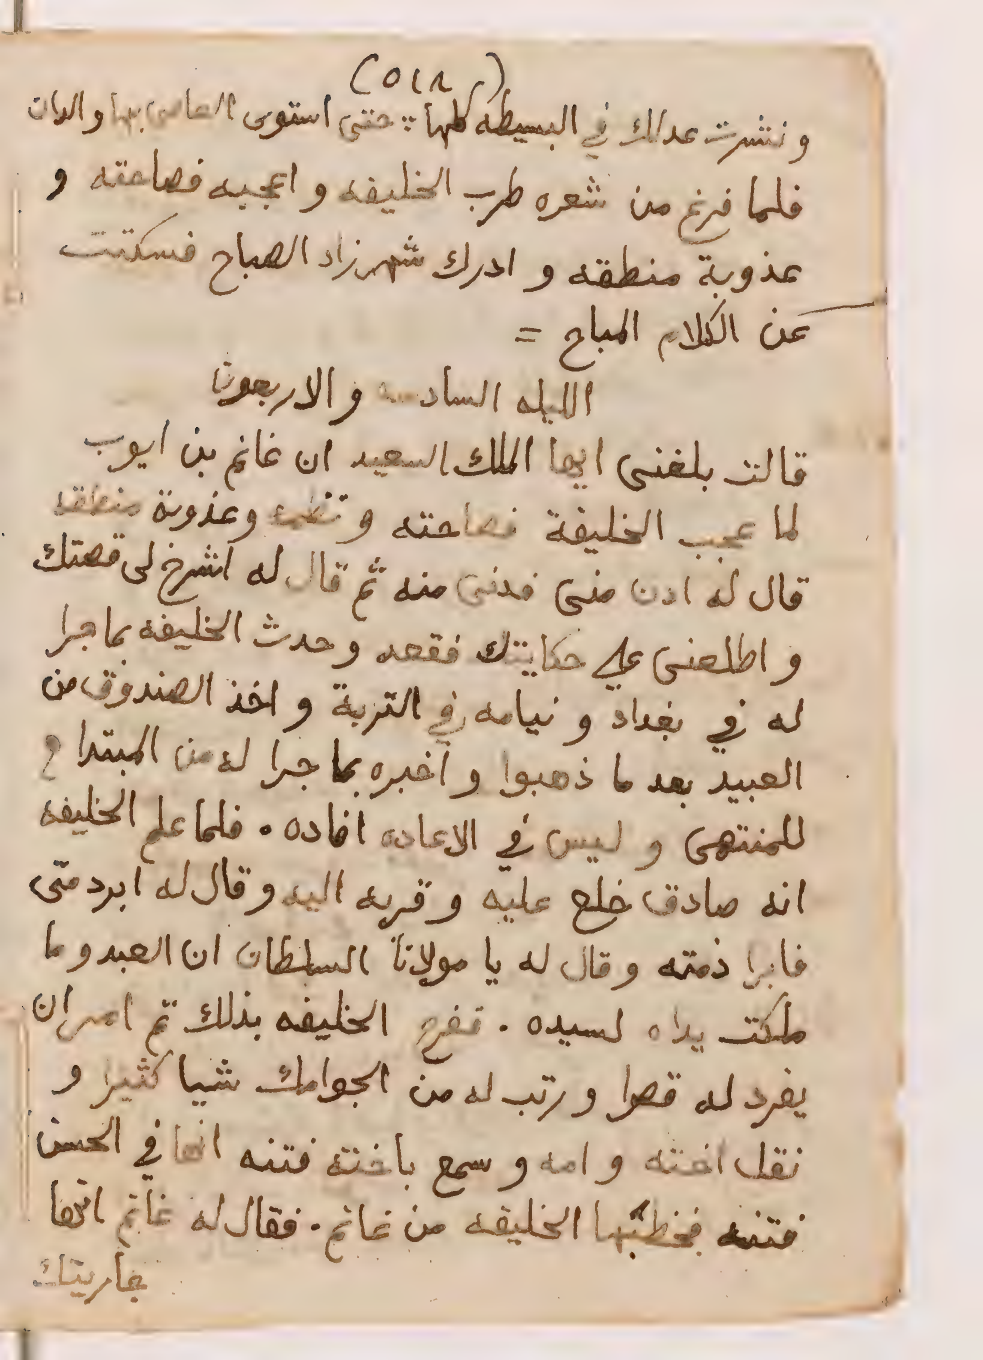 (٥١٨)
ونشرت عدلك في البسيطه كلها ؞ حتى استوى القاصى بها والدان
فلما فرغ من شعره طرب الخليفه و اعجبه فصاحته و
عذوبة منطقه و ادرك شهرزاد الصباح فسكتت
عن الكلام المباح =
الليله السادسه و الاربعون
قالت بلغنى ايها الملك السعيد ان غانم بن ايوب
لما عجب الخليفة فصاحته و نظمه وعذوبة منطقه
قال له ادن منى فدنى منه ثم قال له اشرح لى قصتك
و اطلعنى على حكايتك فقعد وحدث الخليفه بما جرا
له في بغداد و نيامه في التربة و اخذ الصندوق من
العبيد بعد ما ذهبوا و اخبره بما جرا له من المبتدا
للمنتهى و ليس في الاعاده افاده . فلما علم الخليفه
انه صادق خلع عليه و قربه اليه وقال له ابرد متى
فابرا ذمته وقال له يا مولانا السلطان ان العبد وما
ملكت يداه لسيده . ففرح الخليفه بذلك ثم امر ان
يفرد له قصرا و رتب له من الجوامك شيا كثيرا و
نقل اخته و امه و سمع باخته فتنه انها في الحسن
فتنه فخطبها الخليفه من غانم . فقال له غانم انها
جاريتك